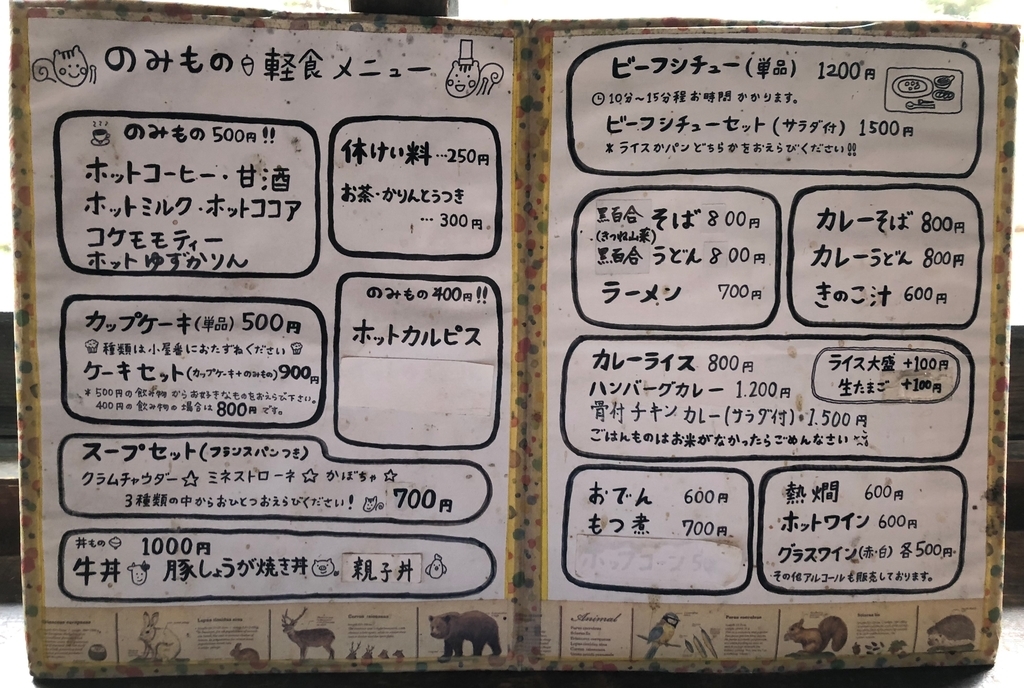 のみもの 軽食 メニュー
のみもの 500円!!
ホットコーヒー・甘酒
ホットミルク・ホットココア
コケモモティー
ホットゆずかりん
休けい料…250円
お茶・かりんとうつき
…300円
カップケーキ(単品) 500円
種類は小屋番におたずねください
ケーキセット(カップケーキ+のみもの)900円
*500円の飲み物からお好きなものをおえらび下さい。
400円の飲み物の場合は800円です。
のみもの400円!!
ホットカルピス
スープセット(フランスパンつき)
クラムチャウダー☆ ミネストローネ☆ かぼちゃ☆
3種類の中からおひとつおえらびください! 700円
丼もの 1000円
牛丼 豚しょうが焼き丼 親子丼
ビーフシチュー(単品) 1200円
10分〜15分程お時間かかります。
ビーフシチューセット(サラダ付) 1500円
*ライスかパンどちらかをおえらびください!!
黒百合 そば 800円
(きつね山菜)
黒百合 うどん 800円
ラーメン 700円
カレーそば 800円
カレーうどん 800円
きのこ汁 600円
カレーライス 800円
ハンバーグカレー 1.200円
骨付チキンカレー(サラダ付)・1.500円
ごはんものはお米がなかったらごめんなさい
ライス大盛 +100円
生たまご +100円
おでん 600円
もつ煮 700円
熱燗 600円
ホットワイン 600円
グラスワイン(赤・白) 各500円
その他アルコールも販売しております。
Animal